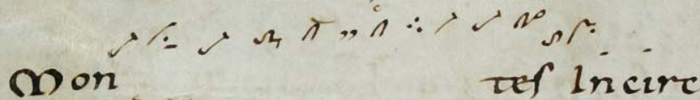 Mon tes Incirc